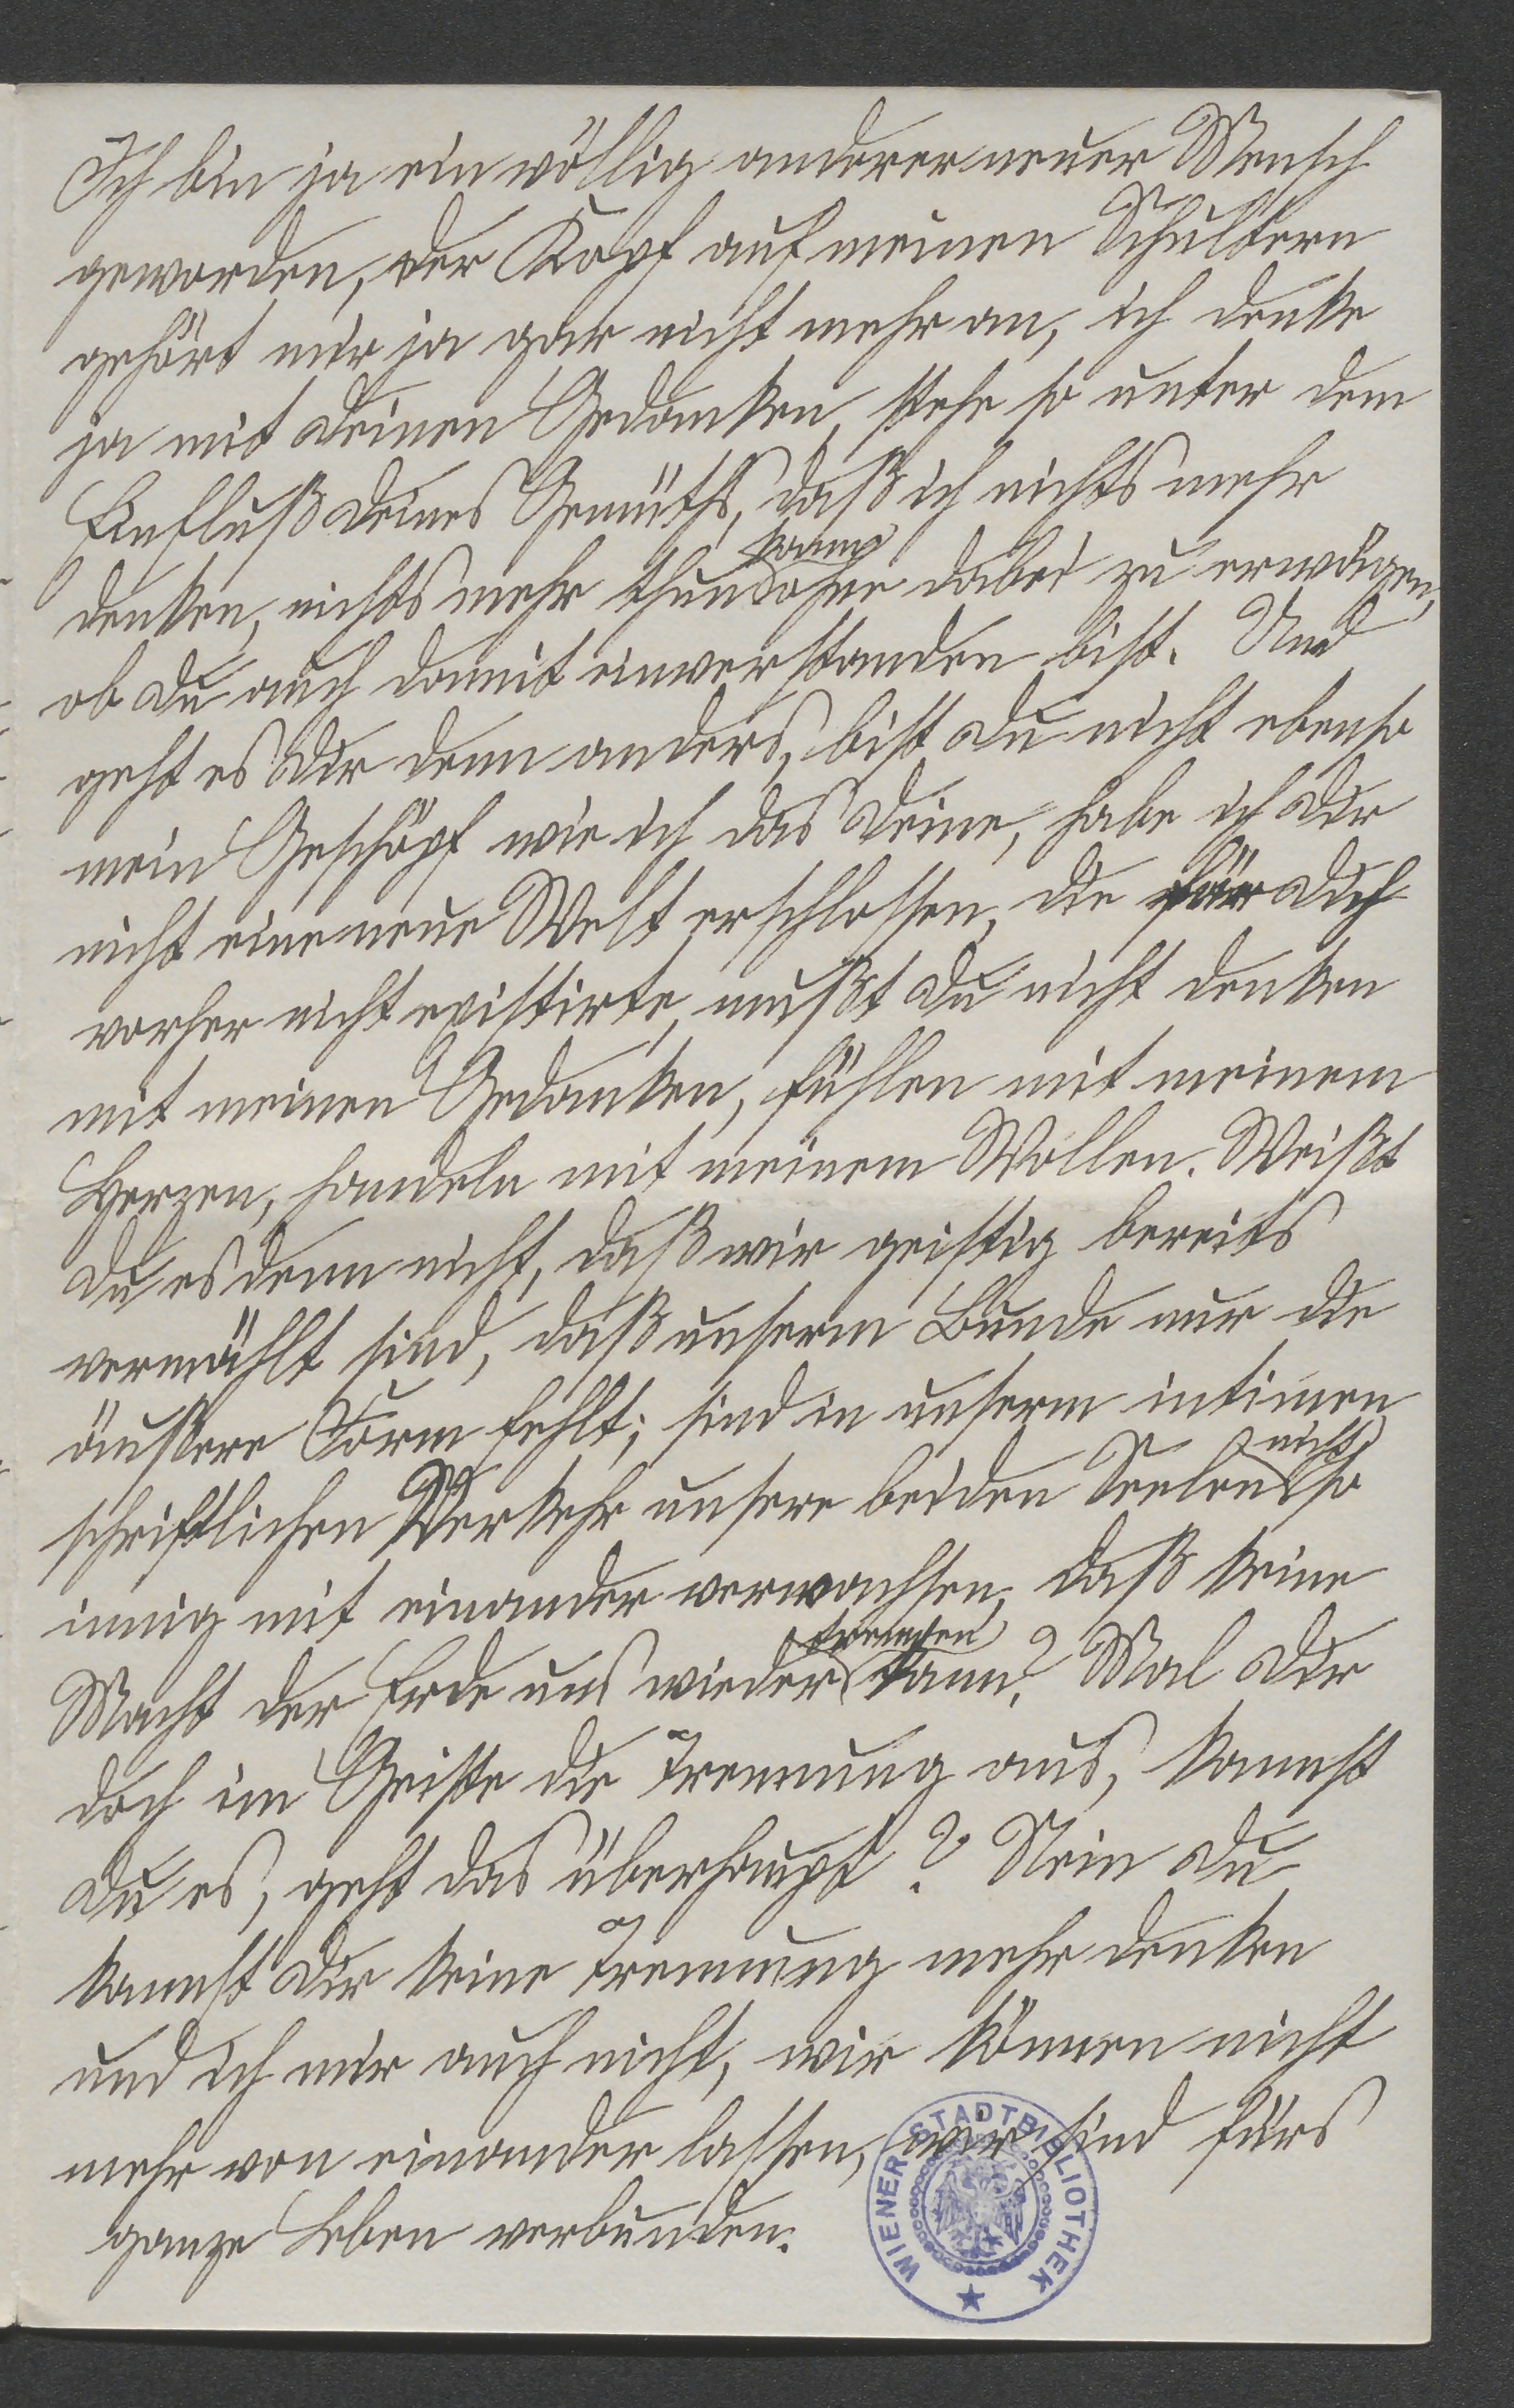 Ich bin ja ein völlig anderer neuer Mensch
geworden, der Kopf auf meinen Schultern
gehört mir ja gar nicht mehr an, ich denke
ja mit Deinen Gedanken, stehe so unter dem
Einfluß Deines Gemüths, daß ich nichts mehr
kann
denken, nichts mehr thun ohne dabei zu erwägen,
ob Du auch damit einverstanden bist. Und
geht es Dir denn anders, bist Du nicht ebenso
mein Geschöpf wie ich das Deine, habe ich Dir
nicht eine neue Welt erschlossen, die für Dich
vorher nicht existirte, mußt Du nicht denken
mit meinen Gedanken, fühlen mit meinem
Herzen, handeln mit meinem Wollen. Weißt
Du es denn nicht, daß wir geistig bereits
vermählt sind, daß unserm Bunde nur die
äußere Form fehlt; sind in unserm intimen
nicht
schriftlichen Verkehr unsere beiden Seelen so
innig mit einander verwachsen, daß keine
trennen
Macht der Erde uns wieder kann? Mal Dir
doch im Geiste die Trennung aus, kannst
Du es, geht das überhaupt? Nein Du
kannst Dir keine Trennung mehr denken
und ich mir auch nicht, wir können nicht
mehr von einander lassen, wir sind fürs
ganze Leben verbunden.
WIENER STADTBIBLIOTHEK